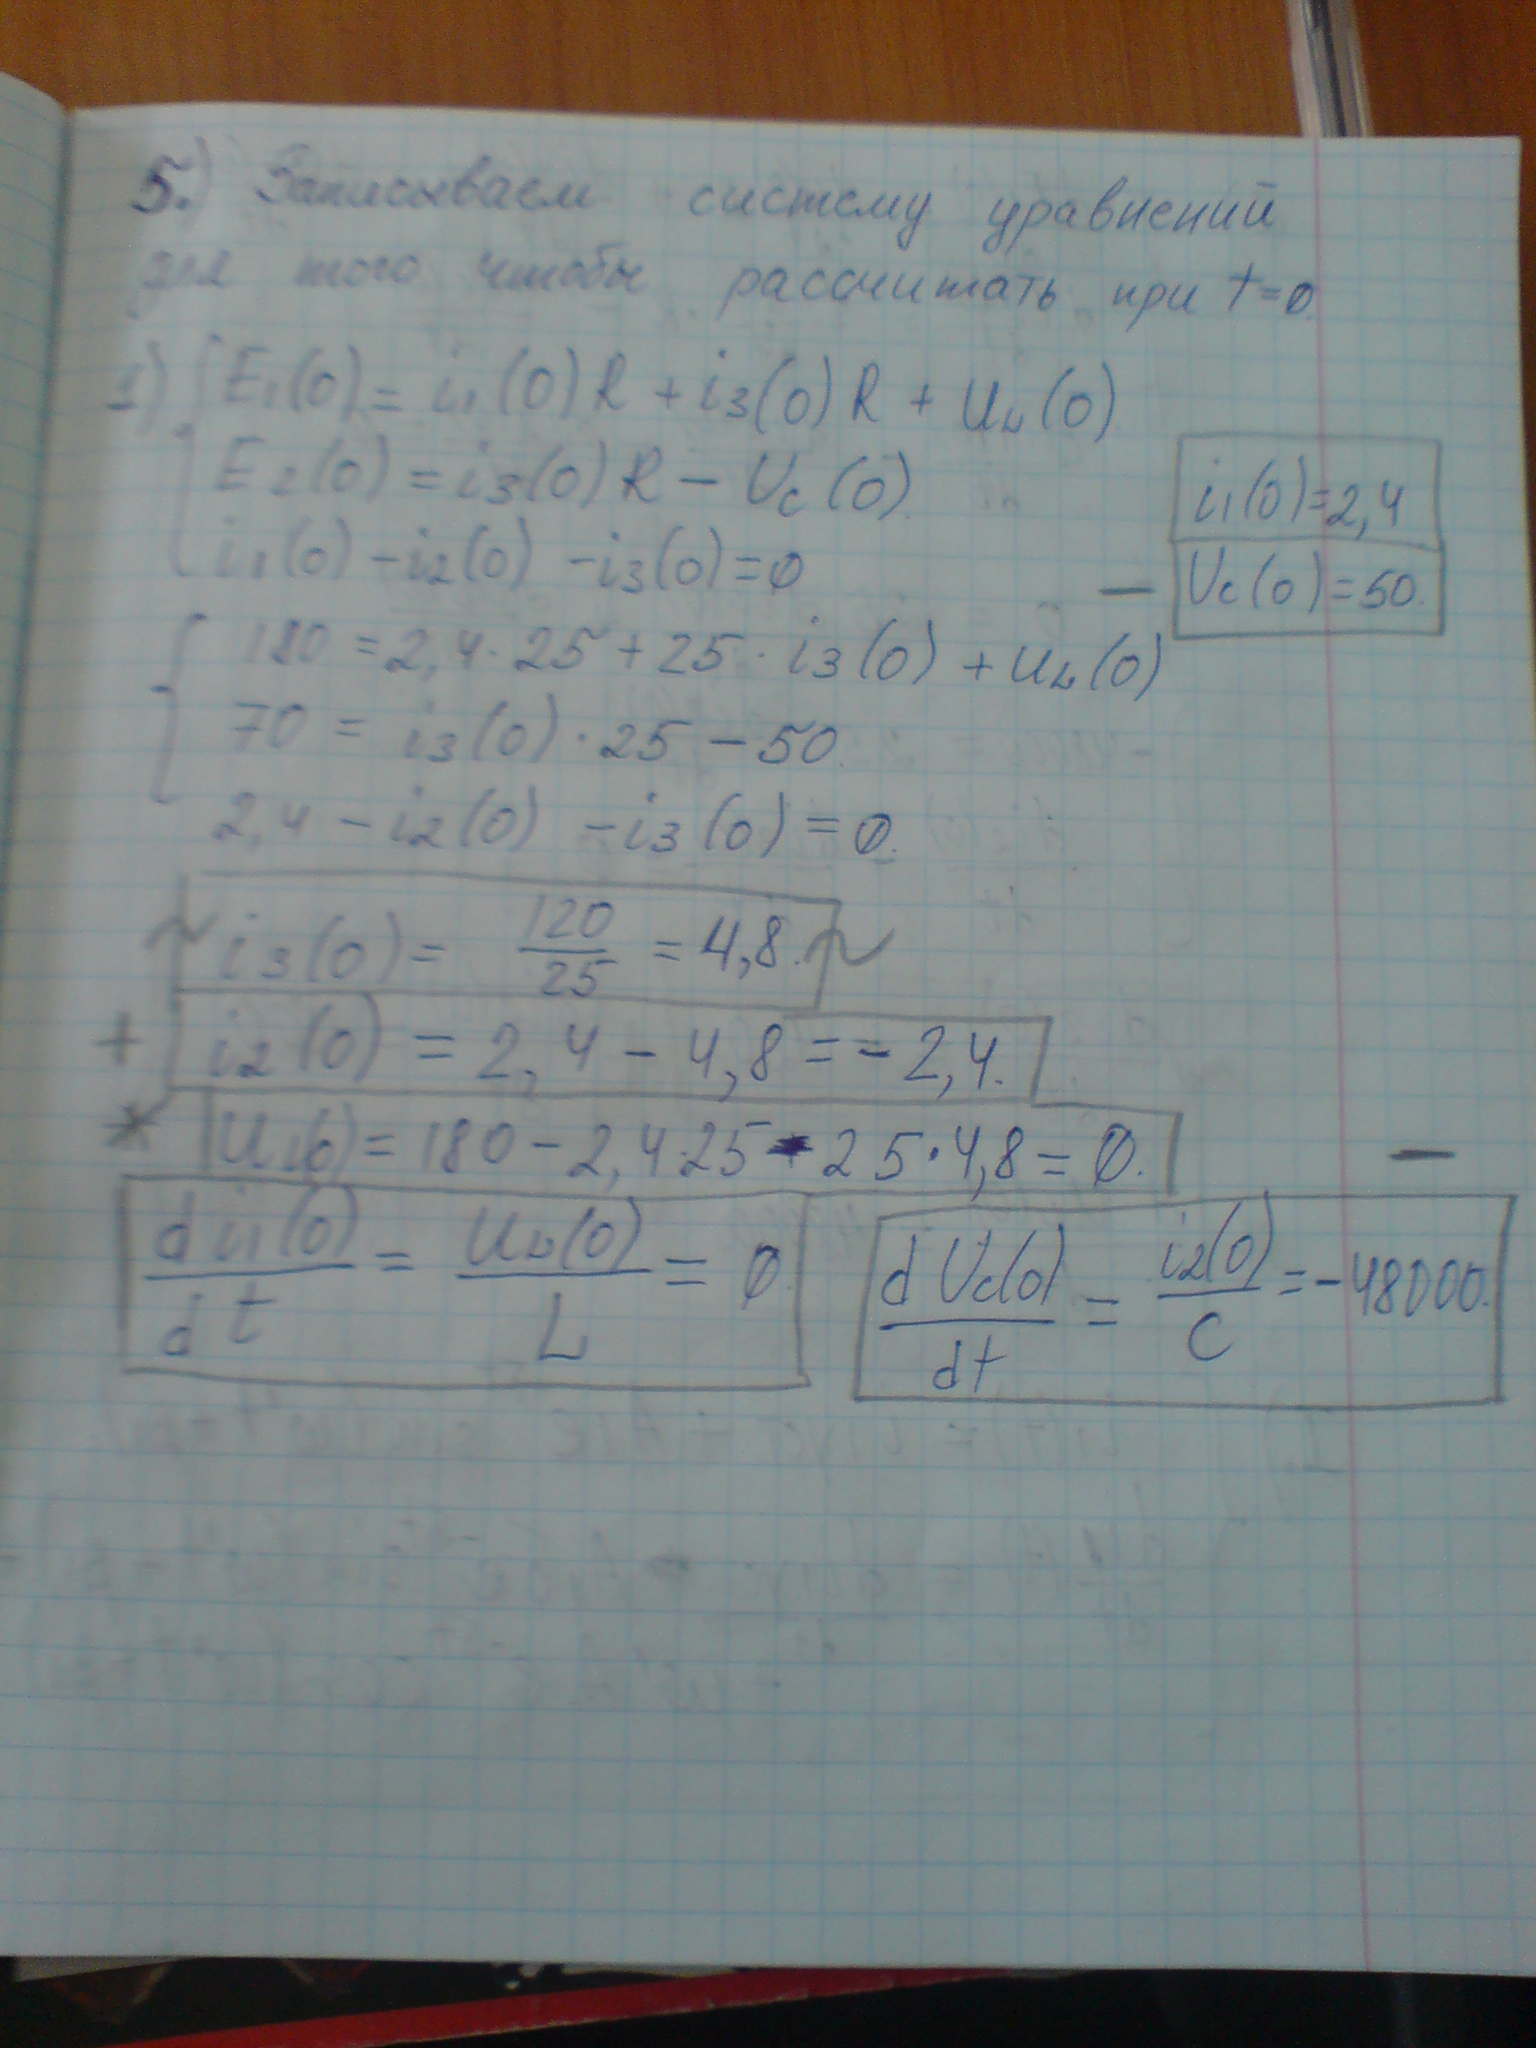 5.) Записываем систему уравнений
для того чтобы рассчитать при t=0.
1) { E1(0) = i1(0)R + i3(0)R + UL(0)
E2(0) = i3(0)R - Uc(0).
i1(0) - i2(0) - i3(0) = 0
i1(0)=2,4
— Uc(0)=50.
{ 180 = 2,4·25 + 25·i3(0) + UL(0)
70 = i3(0)·25 - 50.
2,4 - i2(0) - i3(0) = 0.
~ i3(0) = 120/25 = 4,8. ~
+ i2(0) = 2,4 - 4,8 = -2,4.
* UL(0) = 180 - 2,4·25 - 25·4,8 = 0. —
di1(0)/dt = UL(0)/L = 0. dUc(0)/dt = i2(0)/C = -48000.